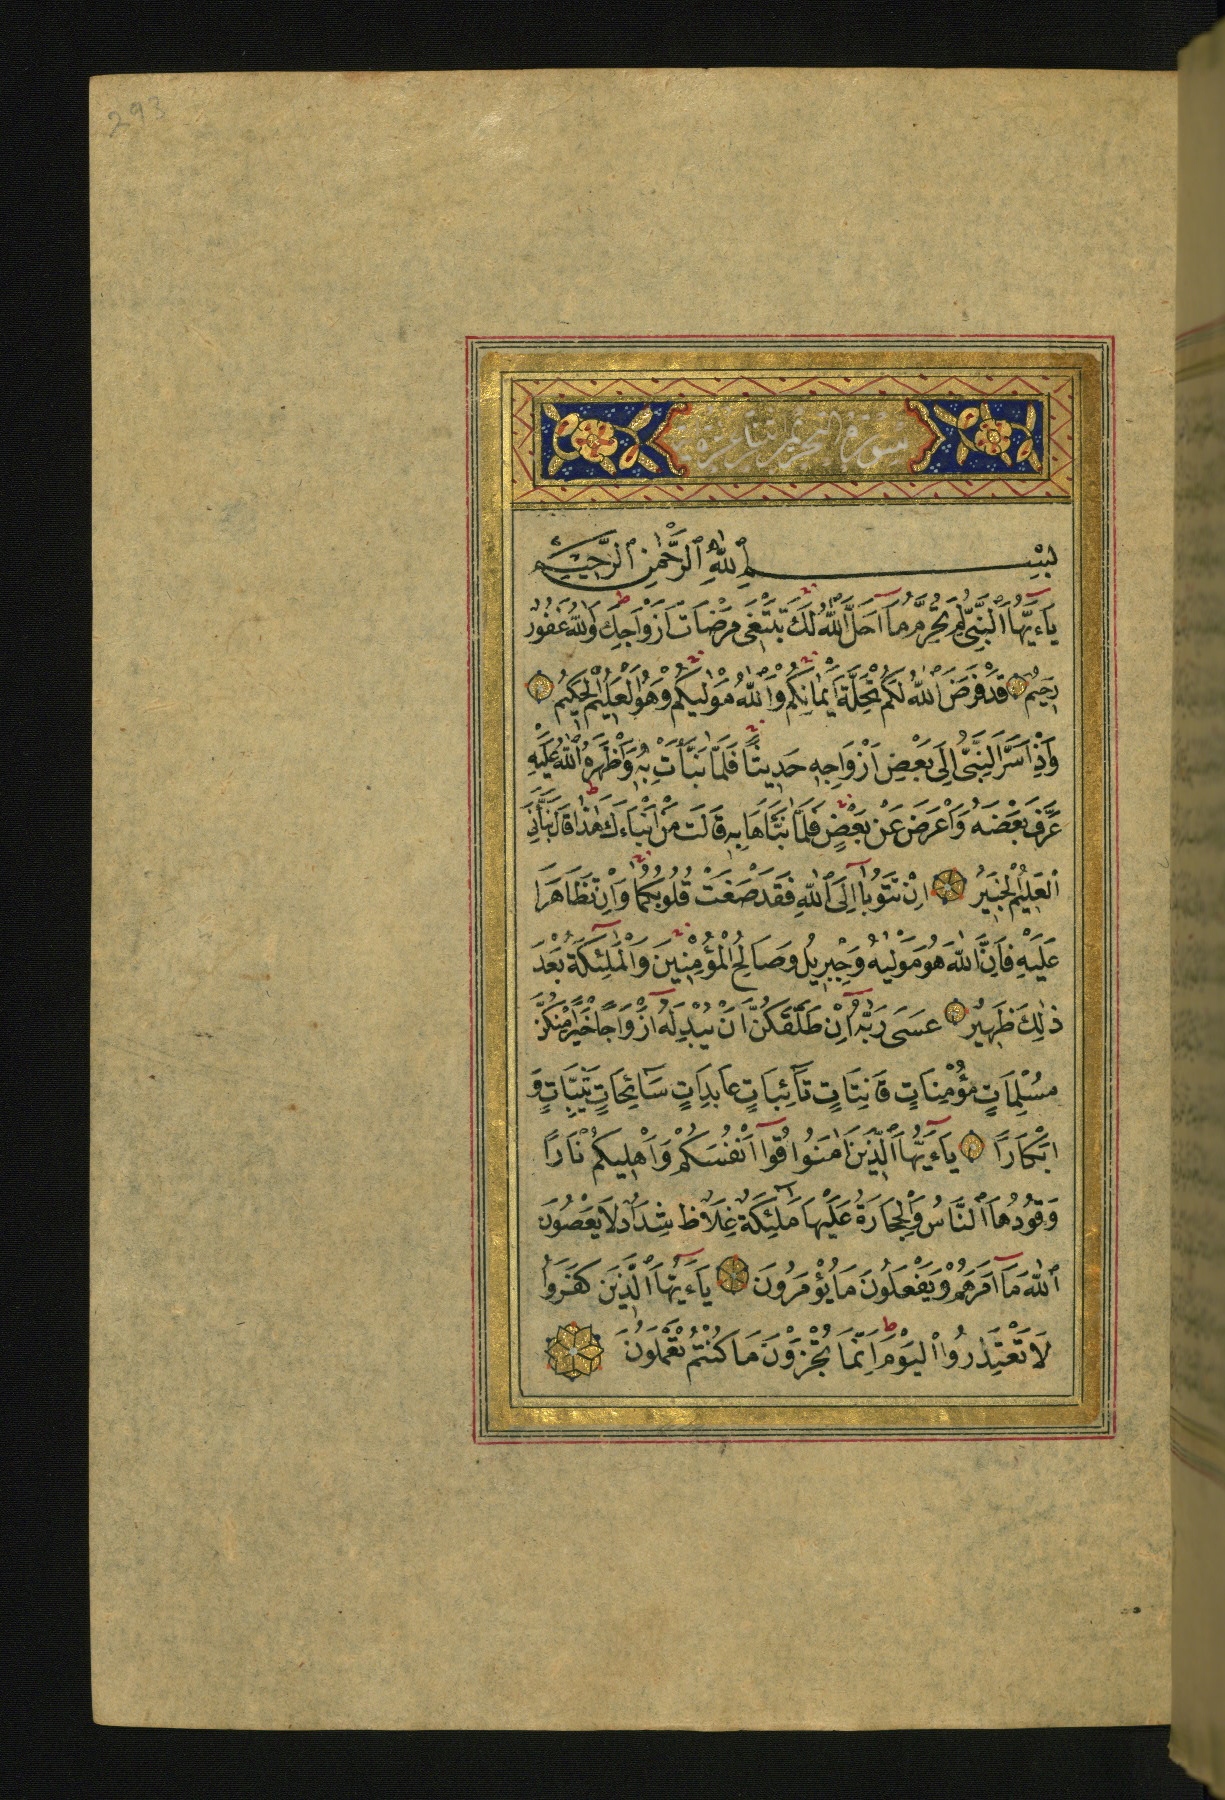 293
سورة التحريم اثنتا عشرة آية
بِسْمِ ٱللَّهِ ٱلرَّحْمٰنِ ٱلرَّحِيمِ
يَاءَيُّهَا ٱلنَّبِىُّ لِمَ تُحَرِّمُ مَآ اَحَلَّ ٱللّٰهُ لَكَ تَبْتَغِى مَرْضَاتَ اَزْوَاجِكَ وَٱللّٰهُ غَفُورٌ
رَحِيمٌ قَدْ فَرَضَ ٱللّٰهُ لَكُمْ تَحِلَّةَ اَيْمَانِكُمْ وَٱللّٰهُ مَوْلٰيكُمْ وَهُوَ ٱلْعَلِيمُ ٱلْحَكِيمُ
وَاِذْ اَسَرَّ ٱلنَّبِىُّ اِلَى بَعْضِ اَزْوَاجِهِ حَدِيثًا فَلَمَّا نَبَّأَتْ بِهِ وَاَظْهَرَهُ ٱللّٰهُ عَلَيْهِ
عَرَّفَ بَعْضَهُ وَاَعْرَضَ عَنْ بَعْضٍ فَلَمَّا نَبَّاَهَا بِهِ قَالَتْ مَنْ اَنْبَاءَكَ هٰذَا قَالَ نَبَّأَنِىَ
ٱلْعَلِيمُ ٱلْخَبِيرُ اِنْ تَتُوبَآ اِلَى ٱللّٰهِ فَقَدْ صَغَتْ قُلُوبُكُمَا وَاِنْ تَظَاهَرَا
عَلَيْهِ فَاِنَّ ٱللّٰهَ هُوَ مَوْلٰيهُ وَجِبْرِيلُ وَصَالِحُ ٱلْمُؤْمِنِينَ وَٱلْمَلٰئِكَةُ بَعْدَ
ذٰلِكَ ظَهِيرٌ عَسَى رَبُّهُ اِنْ طَلَّقَكُنَّ اَنْ يُبْدِلَهُ اَزْوَاجًا خَيْرًا مِنْكُنَّ
مُسْلِمَاتٍ مُؤْمِنَاتٍ قَانِتَاتٍ تَآئِبَاتٍ عَابِدَاتٍ سَآئِحَاتٍ ثَيِّبَاتٍ وَ
اَبْكَارًا يَاءَيُّهَا ٱلَّذِينَ اٰمَنُوا قُوآ اَنْفُسَكُمْ وَاَهْلِيكُمْ نَارًا
وَقُودُهَا ٱلنَّاسُ وَٱلْحِجَارَةُ عَلَيْهَا مَلٰٓئِكَةٌ غِلَاظٌ شِدَادٌ لَا يَعْصُونَ
ٱللّٰهَ مَآ اَمَرَهُمْ وَيَفْعَلُونَ مَا يُؤْمَرُونَ يَاءَيُّهَا ٱلَّذِينَ كَفَرُوا
لَا تَعْتَذِرُوا ٱلْيَوْمَ اِنَّمَا تُجْزَوْنَ مَا كُنْتُمْ تَعْمَلُونَ